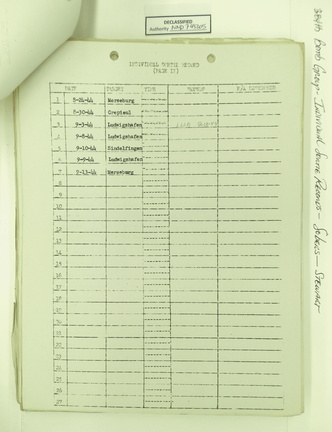 DECLASSIFIED
Authority NND 745005
INDIVIDUAL SORTIE RECORD
(PAGE II)
DATE TARGET TIME REMARKS
1 8-24-44 Merseburg
2 8-30-44 Crepieul
3 9-3-44 Ludwigshafen
4 9-8-44 Ludwigshafen
5 9-10-44 Sindelfingen
6 9-9-44 Ludwigshafen
7 9-13-44 Merseburg
8
9
10
11
12
13
14
15
16
17
18
19
20
21
22
23
24
25
26
27
384th Bomb Group - Individual Sortie Records - Sebens - Stewart